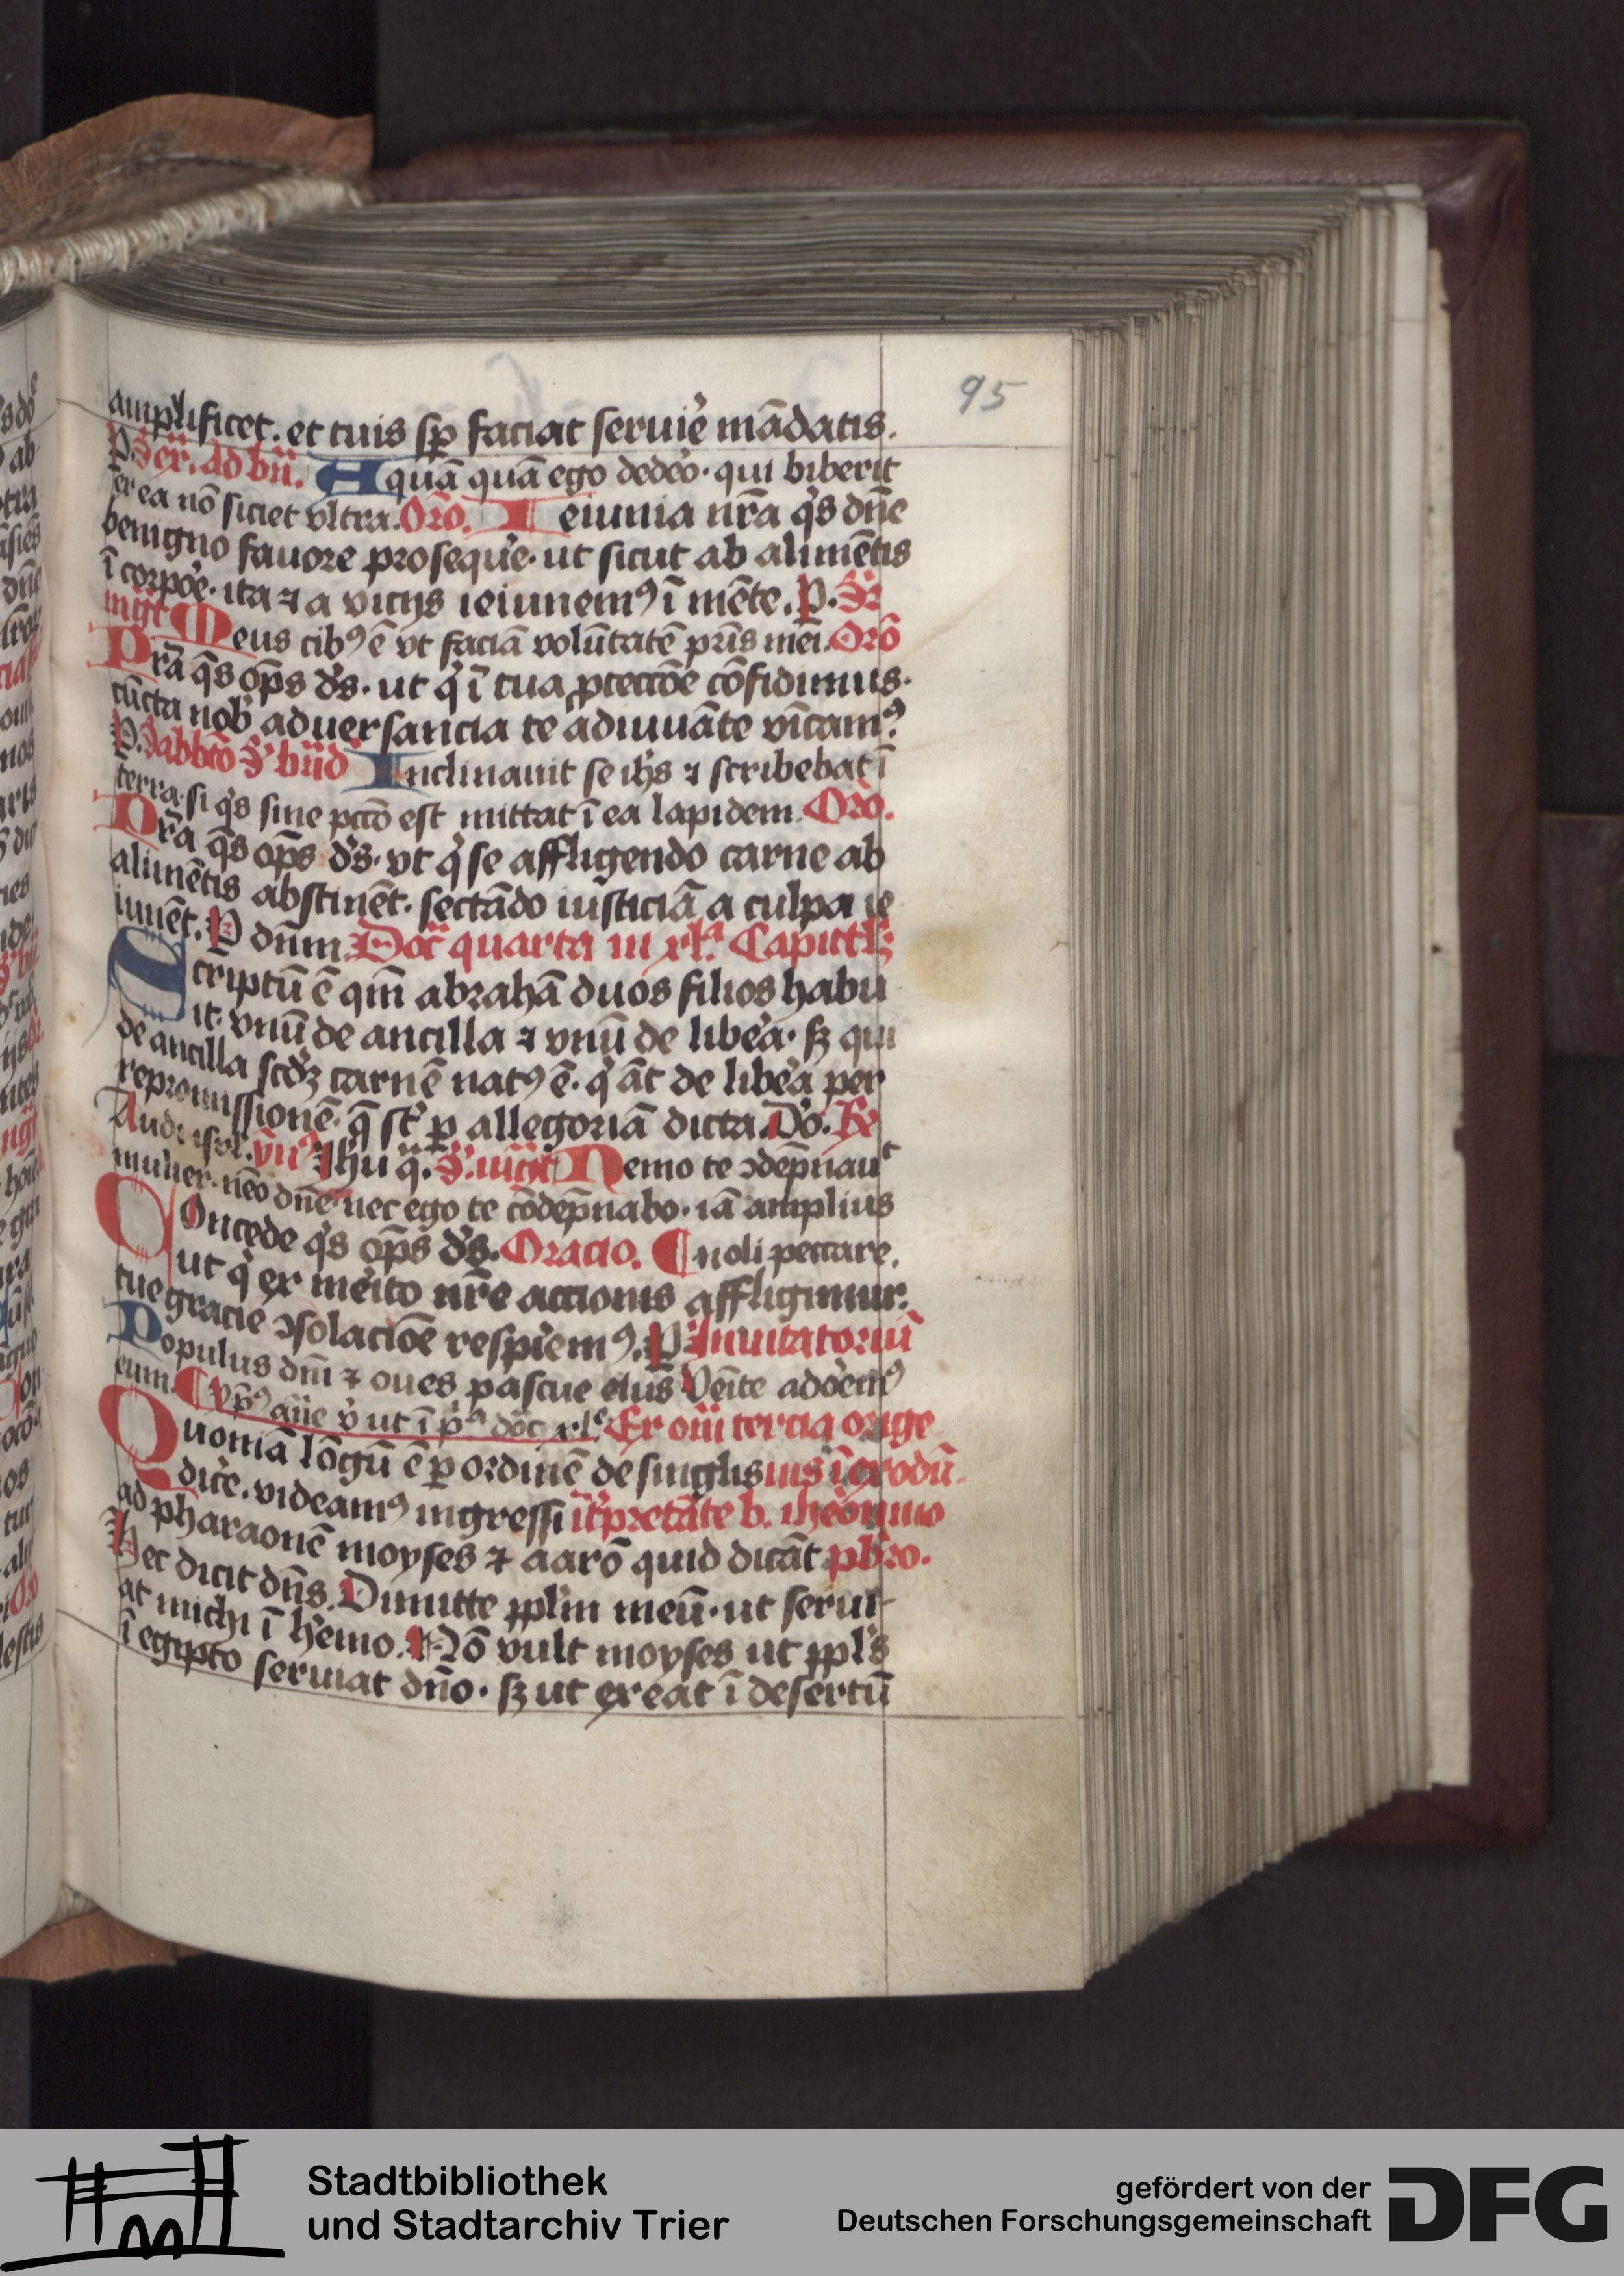 95
amplificet. et tuis sp̄ faciat seruie᷑ mādatis.
P. Ser. ad bn̄. Aquā quā ego dedeo᷑. qui biberit
ex ea nō siciet vltra. Orō. Ieiunia nr̄a qs̄ dn̄e
benigno fauore proseque᷑. ut sicut ab alimētis
ī corpoe᷑. ita ⁊ a vicijs ieiunemꝰ ī mēte. P. S᷑
mgt̄ Meus cibꝰ ē vt faciā volūtatē pr̄is mei. Orō
Pr̄a qs̄ op̄s ds̄. ut q̇ ī tua ꝓteccōe cōfidimus.
cūcta nob᷑ aduersancia te adiuuāte vīcamꝰ.
P. Sabbto᷑ S᷑ bn̄d Inclinauit se ih̄s ⁊ scribebat ī
terra. si qs̄ sine pccō est mittat ī ea lapidem. Orō.
Pr̄a qs̄ op̄s ds̄. vt q̇ se affligendo carne ab
alimētis abstinēt. sectādo iusticiā a culpa ie
iunēt. P dn̄m. Doc̄ quarta in xlᵃ. Capitl̄ꝫ
Scriptū ē qm̄ abrahā duos filios habu
it. vnū de ancilla ⁊ vnū de libea᷑. sꝫ qui
de ancilla scd̄ꝫ carnē natꝰ ē. q̇ āt de libea᷑ per
repromissionē. q̄ st᷑ ꝑ allegoriā dicta. Do᷑. Rx̄
mulier. nēo dn̄e nec ego te cōdep̄nabo. iā amplius
Concede qs̄ op̄s ds̄. Oracio. ¶ noli peccare.
ut q̇ ex meito᷑ nr̄e accionis affligimur.
tue gracie ꝯsolaciōe respie᷑mꝰ. P Inuitatoriū
Populus dn̄i ⁊ oues pascue eius Venite adoe᷑mꝰ
eum. ¶ yp̄ꝰ āne v᷑ ut ī pᵃ doc̄ xlᵉ. Ex om̄ tercia orige
Quoniā lōgū ē ꝑ ordinē de singlis nis ī exodū.
dice᷑. videamꝰ ingressi īt᷑pretāte b. iheo᷑nimo
ad pharaonē moyses ⁊ aarō quid dicāt pbr̄o.
Hec dicit dn̄s. Dimitte ppl̄m meū. ut serui
at michi ī he᷑mo. Nō vult moyses ut ppl̄s
ī egipto seruiat dn̄o. sꝫ ut exeat ī desertū
Stadtbibliothek
und Stadtarchiv Trier
gefördert von der
Deutschen Forschungsgemeinschaft
DFG